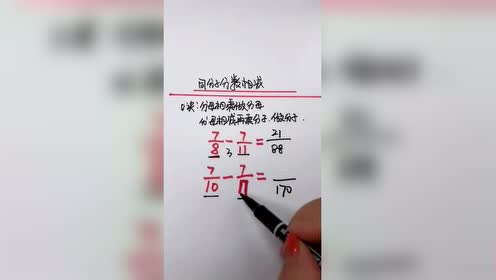 同分子分数相减
口诀:分母相乘做分母
分母相减再乘分子.做分子.
7/8 - 7/11 = 21/88
3
7/10 - 7/ = /170